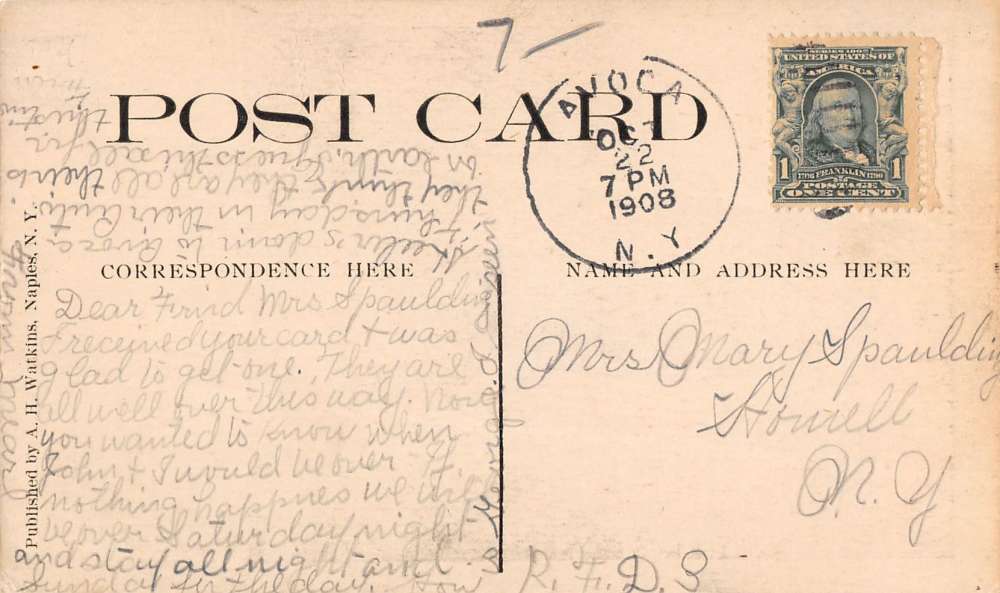 7-
POST CARD
AVOCA
OCT
22
7 PM
1908
N.Y.
SERIES 1902
UNITED STATES OF
AMERICA
1 1706 FRANKLIN 1790 1
POSTAGE
ONE CENT
CORRESPONDENCE HERE
NAME AND ADDRESS HERE
Published by A. H. Watkins, Naples, N. Y.
Dear Frind Mrs Spaulding
I received your card & was
glad to get one. They are
all well over this way. Now
you wanted to know when
John & I would be over. If
nothing happnes we will
be over Saturday night
and stay all night and
Sunday for the day. How
Keeler's down to Avoca
Thursday in their Auto
they think they are all their is
on earth. I guess this all for
this time
From your
Mrs Mary Spaulding
Howell
N. Y
R. F. D. 3